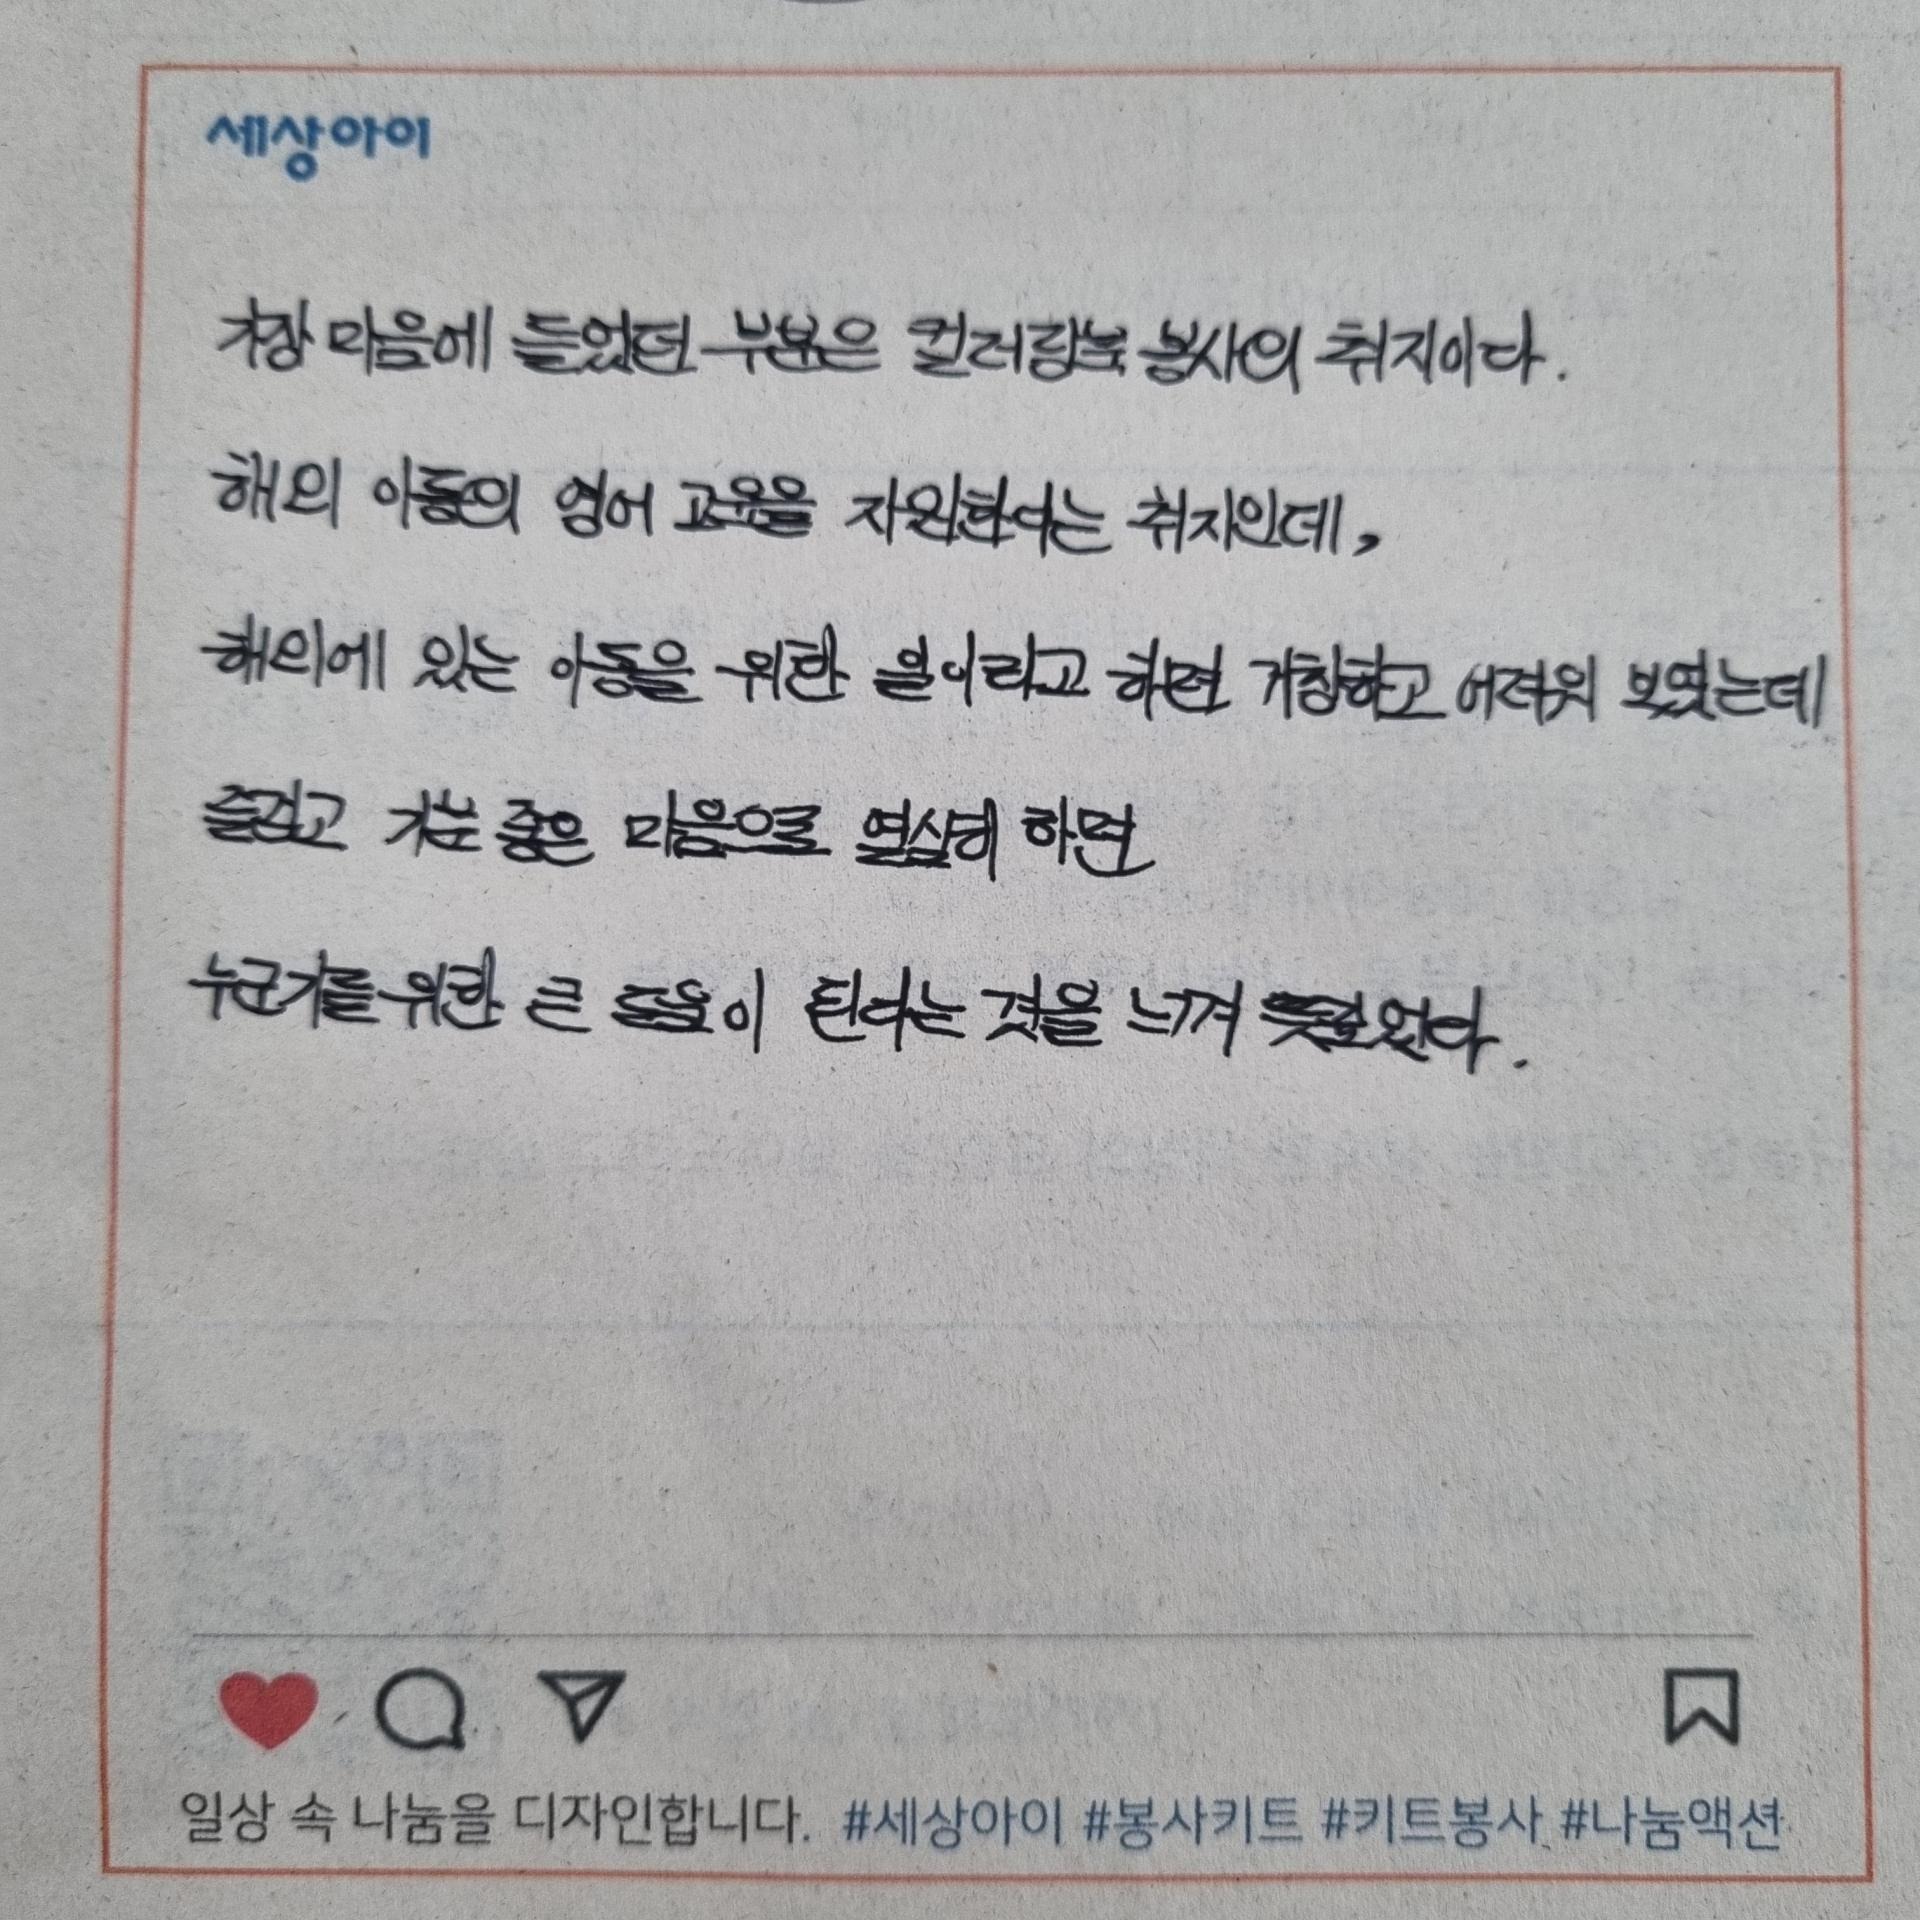 세상아이
가장 마음에 들었던 부분은 컬러링북 봉사의 취지이다.
해외 아동의 영어 교육을 지원한다는 취지인데,
해외에 있는 아동을 위한 일이라고 하면 거창하고 어려워 보였는데
즐겁고 기분 좋은 마음으로 열심히 하면
누군가를 위한 큰 도움이 된다는 것을 느껴 뜻깊었다.
일상 속 나눔을 디자인합니다. #세상아이 #봉사키트 #키트봉사 #나눔액션